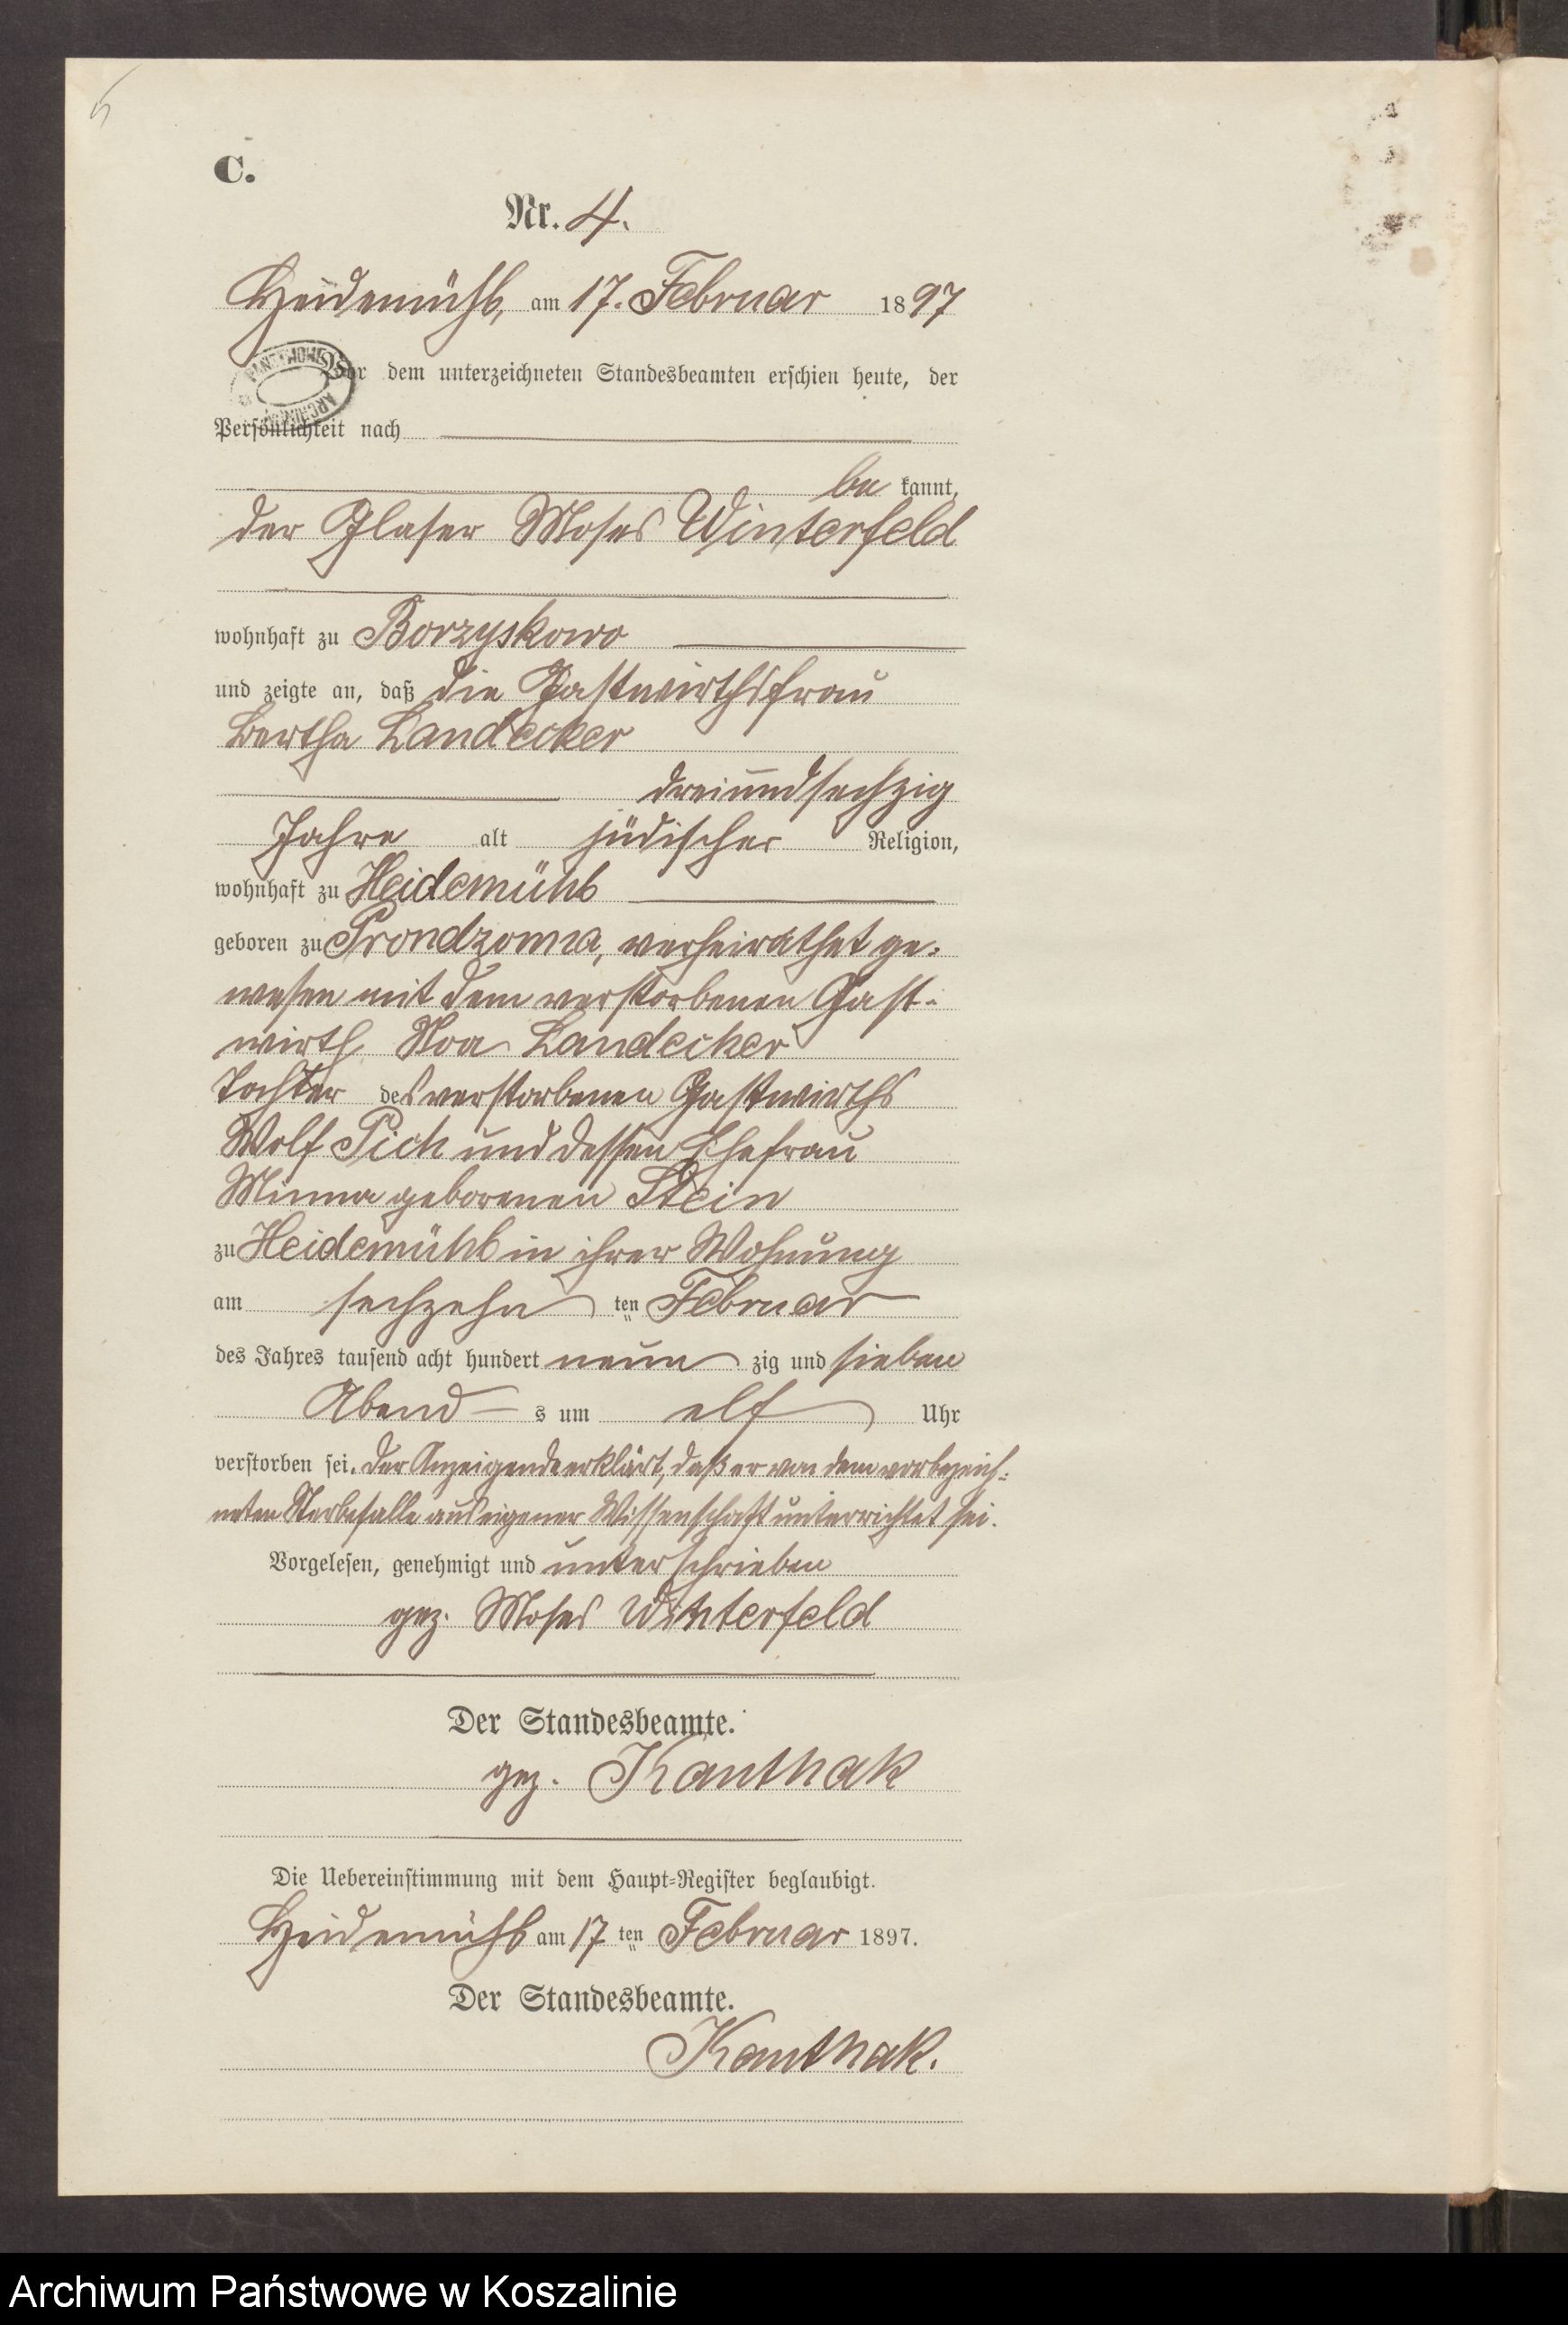 C.
Nr. 4.
Heidemühl, am 17. Februar 1897
Vor dem unterzeichneten Standesbeamten erschien heute, der
Persönlichkeit nach
be kannt,
der Glaser Moses Winterfeld
wohnhaft zu Borzyskowo
und zeigte an, daß die Gastwirthsfrau
Bertha Landecker
dreiundsechzig
Jahre alt jüdischer Religion,
wohnhaft zu Heidemühl
geboren zu Prondzonna, verheirathet ge-
wesen mit dem verstorbenen Gast-
wirth Noa Landecker
Tochter des verstorbenen Gastwirths
Wolf Pich und dessen Ehefrau
Minna geborenen Stein
zu Heidemühl in ihrer Wohnung
am sechzehn ten Februar
des Jahres tausend acht hundert neun zig und sieben
Abend s um elf Uhr
verstorben sei. Der Anzeigende erklärt, daß er von dem vorbezeich-
neten Sterbefalle aus eigener Wissenschaft unterrichtet sei.
Vorgelesen, genehmigt und unterschrieben
gez. Moses Winterfeld
Der Standesbeamte.
gez. Kanthak
Die Uebereinstimmung mit dem Haupt-Register beglaubigt.
Heidemühl am 17 ten Februar 1897.
Der Standesbeamte.
Kanthak.
Archiwum Państwowe w Koszalinie